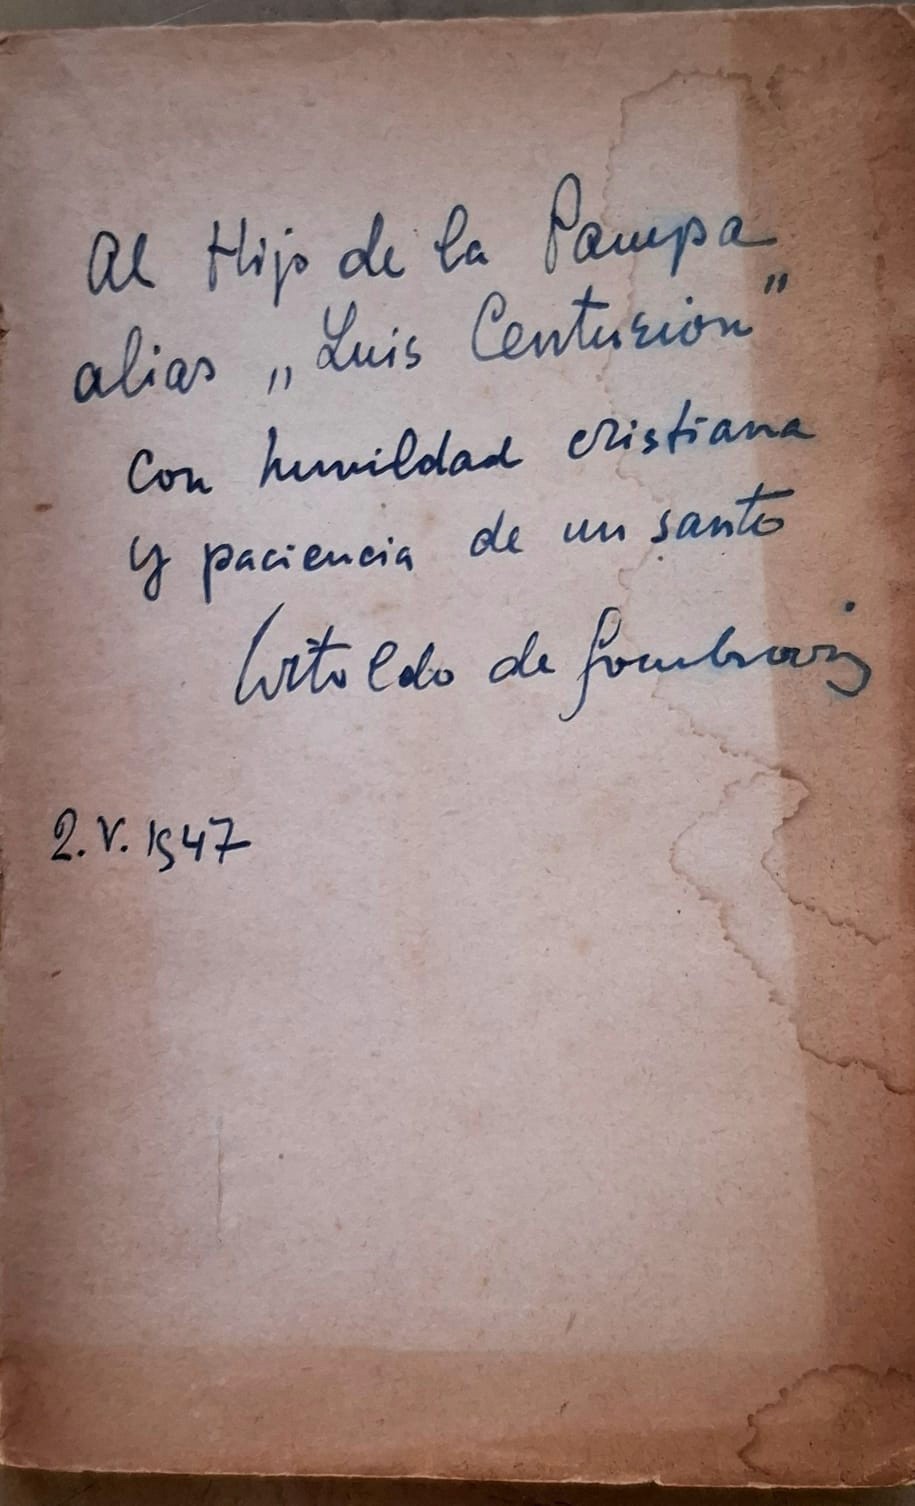 Al Hijo de la Pampa
alias „Luis Centurion"
con humildad cristiana
y paciencia de un santo
Witoldo de Gombrowicz
2.V.1947